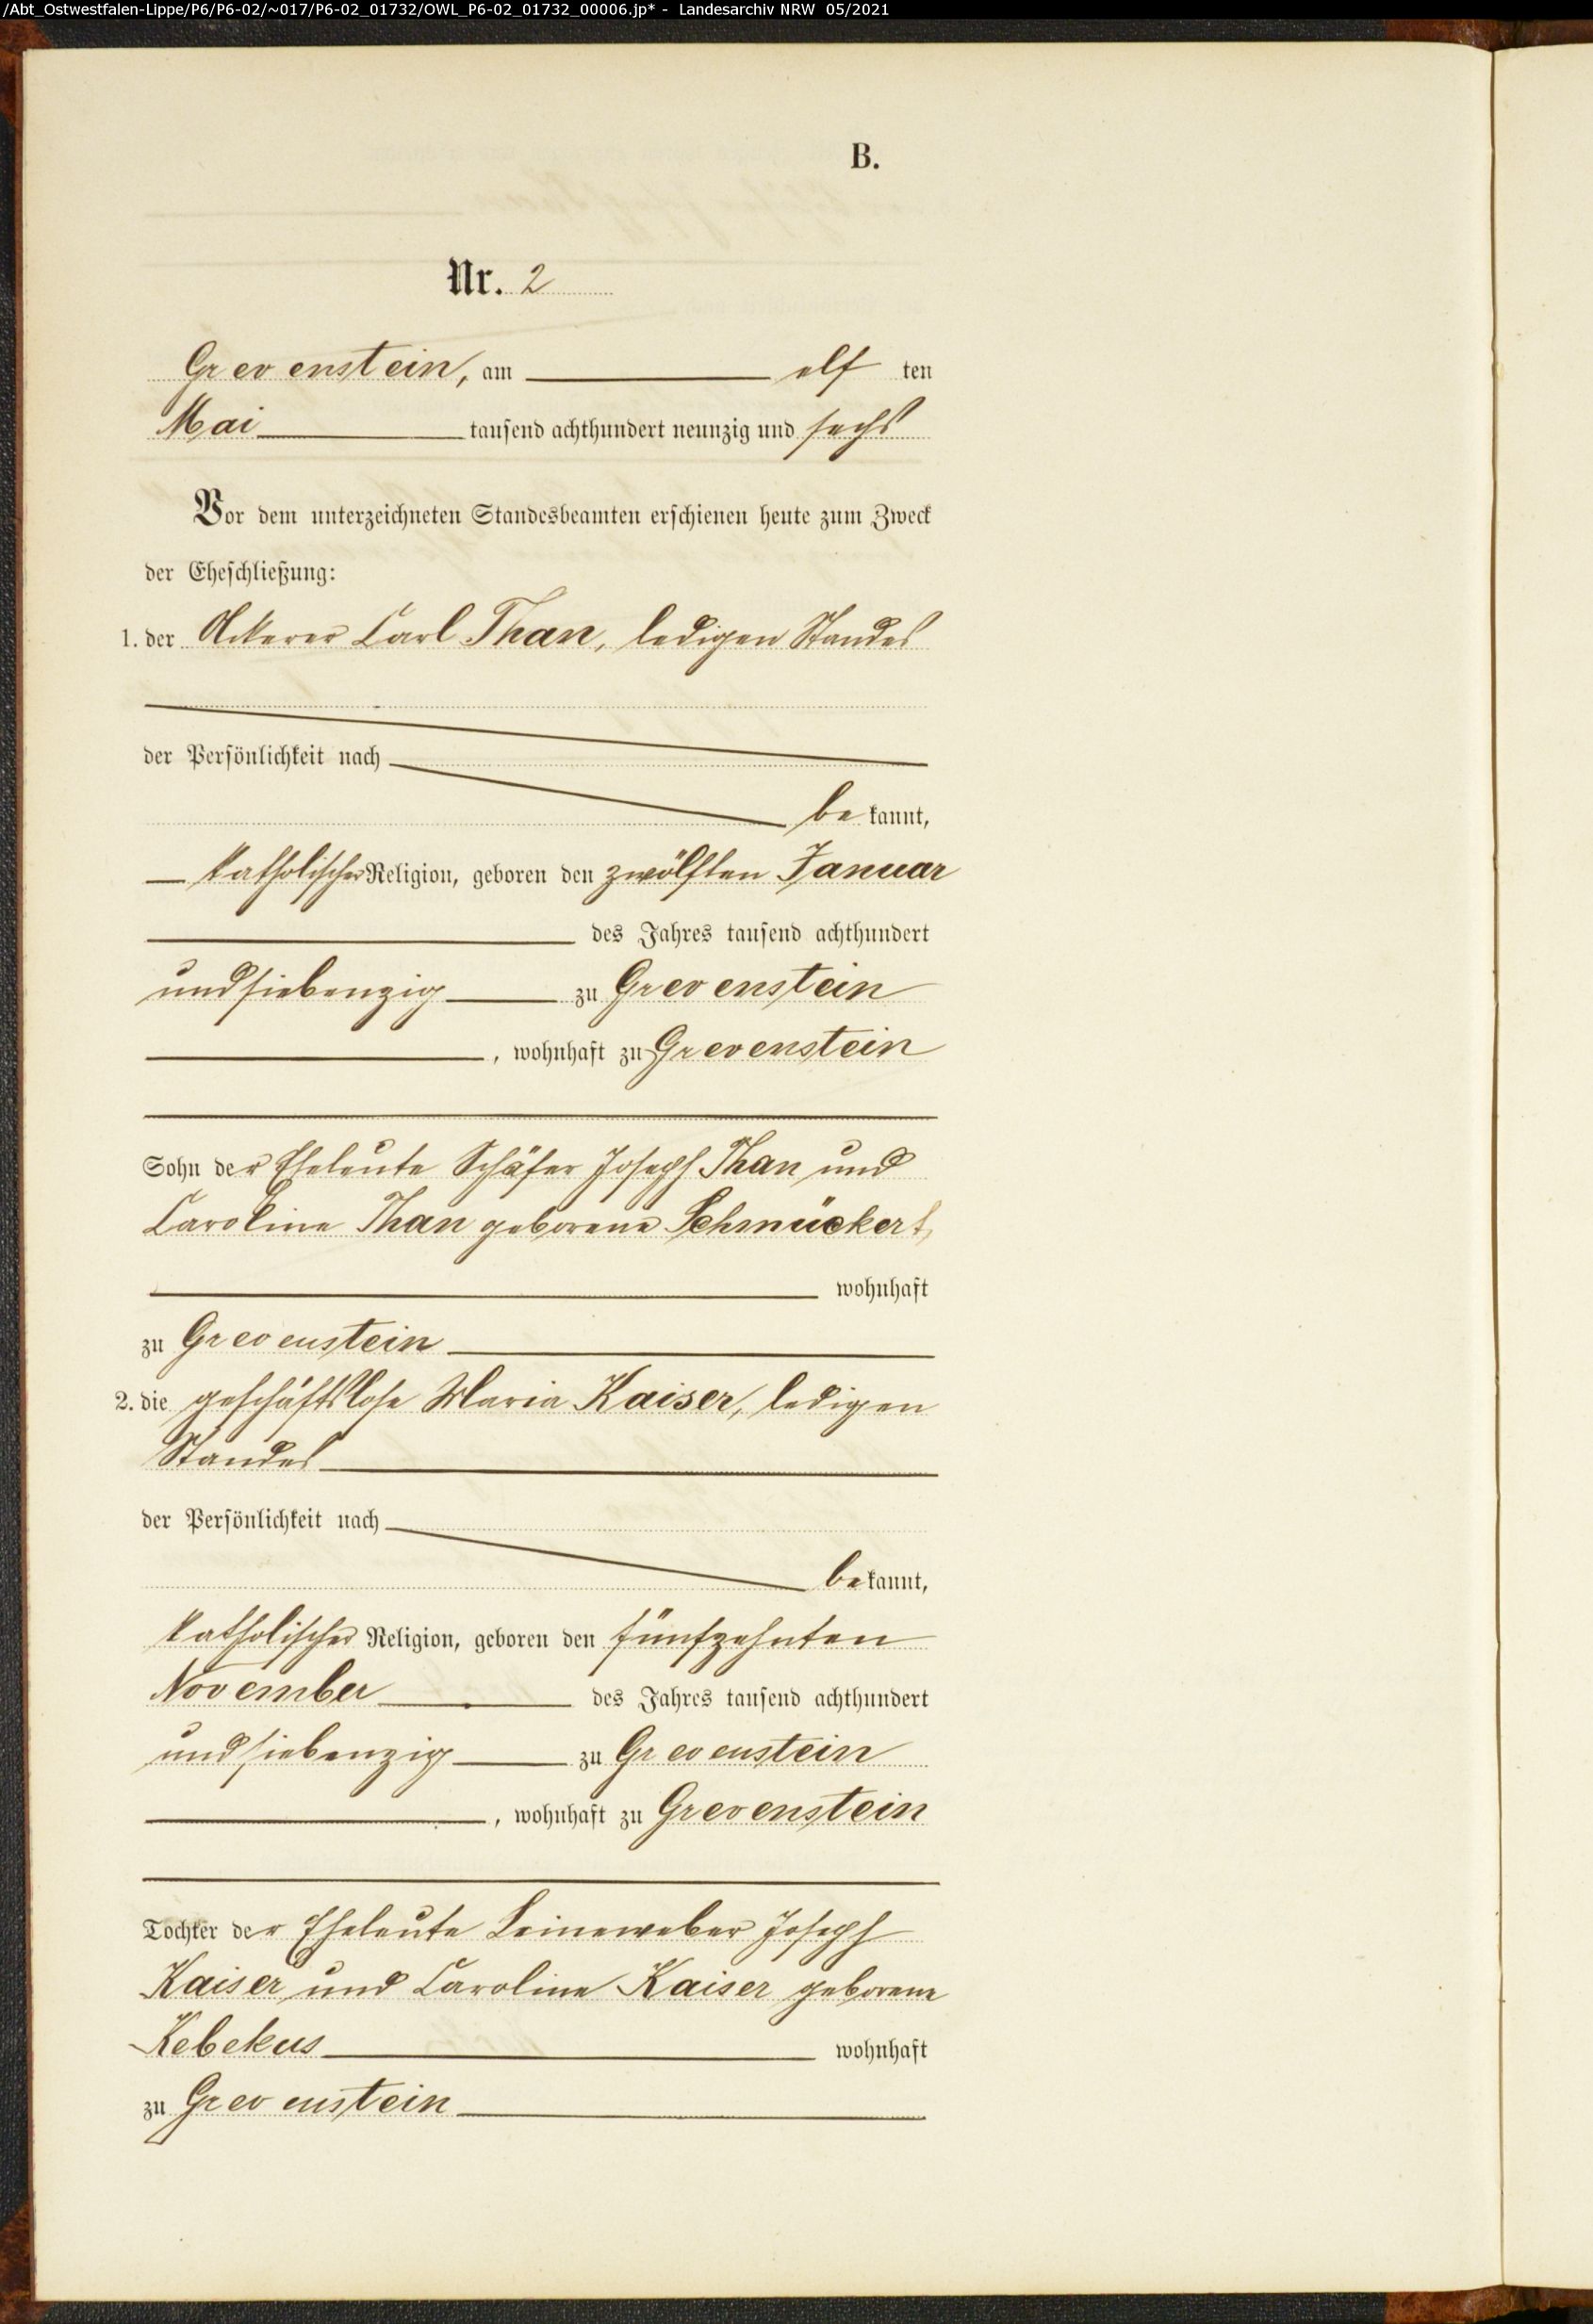 /Abt_Ostwestfalen-Lippe/P6/P6-02/~017/P6-02_01732/OWL_P6-02_01732_00006.jp* - Landesarchiv NRW 05/2021
B.
Nr. 2
Grevenstein, am elf ten
Mai tausend achthundert neunzig und sechs
Vor dem unterzeichneten Standesbeamten erschienen heute zum Zweck
der Eheschließung:
1. der Ackerer Carl Than, ledigen Standes
der Persönlichkeit nach
be kannt,
katholischer Religion, geboren den zwölften Januar
des Jahres tausend achthundert
undsiebenzig zu Grevenstein
, wohnhaft zu Grevenstein
Sohn der Eheleute Schäfer Joseph Than und
Caroline Than geborene Schmückert,
wohnhaft
zu Grevenstein
2. die geschäftslose Maria Kaiser, ledigen
Standes
der Persönlichkeit nach
bekannt,
katholischer Religion, geboren den fünfzehnten
November des Jahres tausend achthundert
undsiebenzig zu Grevenstein
, wohnhaft zu Grevenstein
Tochter der Eheleute Leineweber Joseph
Kaiser und Caroline Kaiser geborene
Kebekus wohnhaft
zu Grevenstein